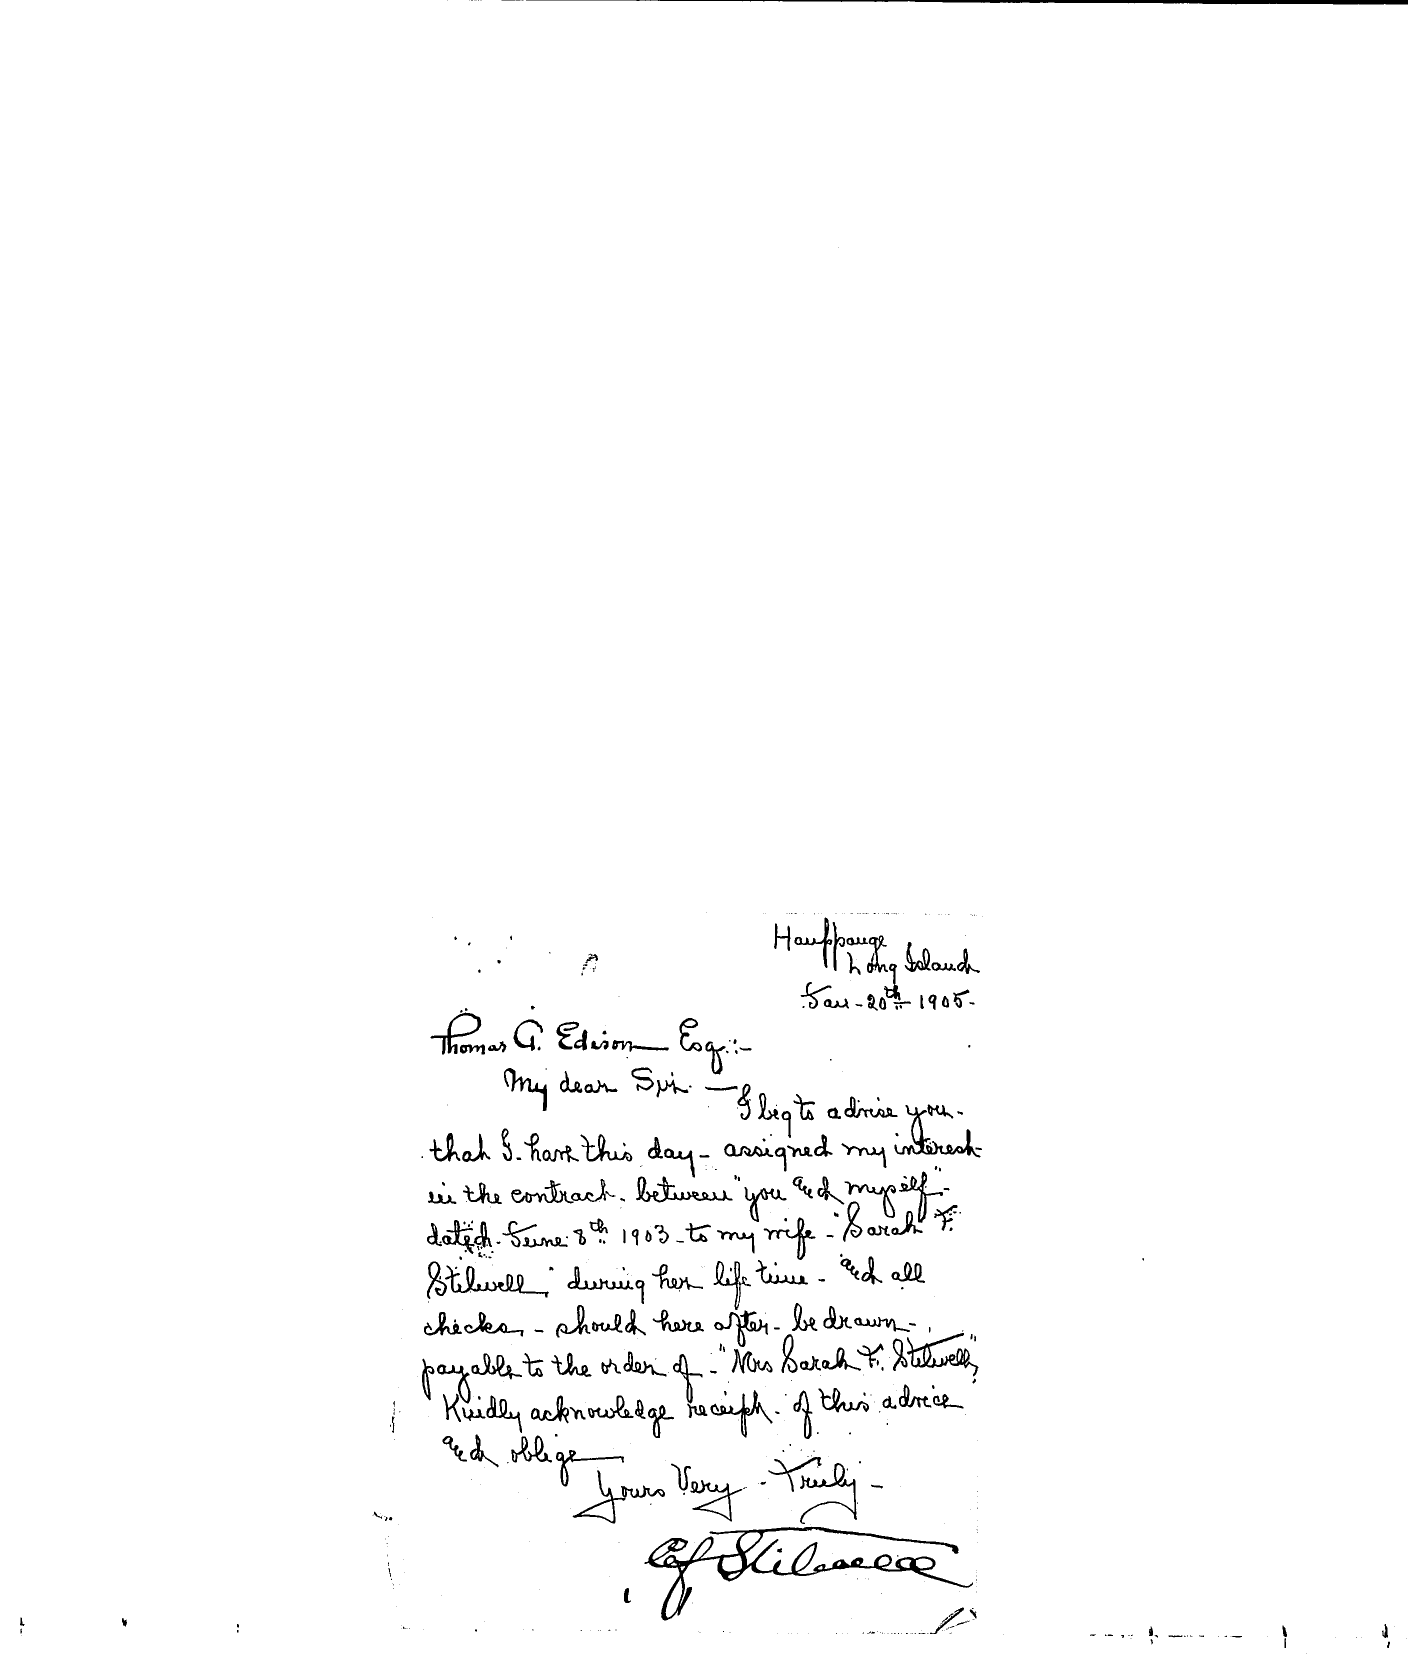 Hauppauge
Long Island
Jan - 20th 1905 -
Thomas A. Edison Esq. :-
My dear Sir. —
I beg to advise you -
that I. have this day - assigned my interest -
in the contract. between "you and myself" -
dated - June 8th 1903 - to my wife - "Sarah F.
Stilwell," during her life time - and all
checks, - should here after - be drawn -
payable to the order of - "Mrs Sarah F. Stilwell,"
Kindly acknowledge receipt. of this advice
and oblige —
Yours Very - Truly -
Stilwell